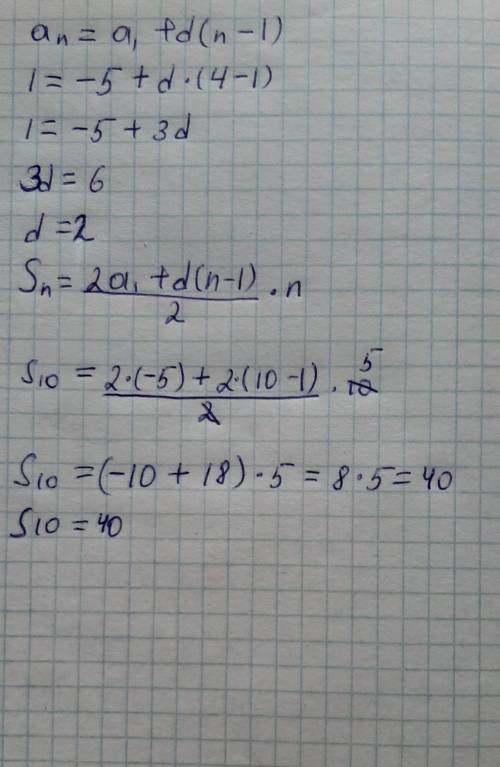 aₙ = a₁ + d(n − 1)
1 = −5 + d · (4 − 1)
1 = −5 + 3d
3d = 6
d = 2
Sₙ = (2a₁ + d(n−1))/2 · n
S₁₀ = (2·(−5) + 2·(10 − 1))/2 · 10 5
S₁₀ = (−10 + 18) · 5 = 8 · 5 = 40
S₁₀ = 40